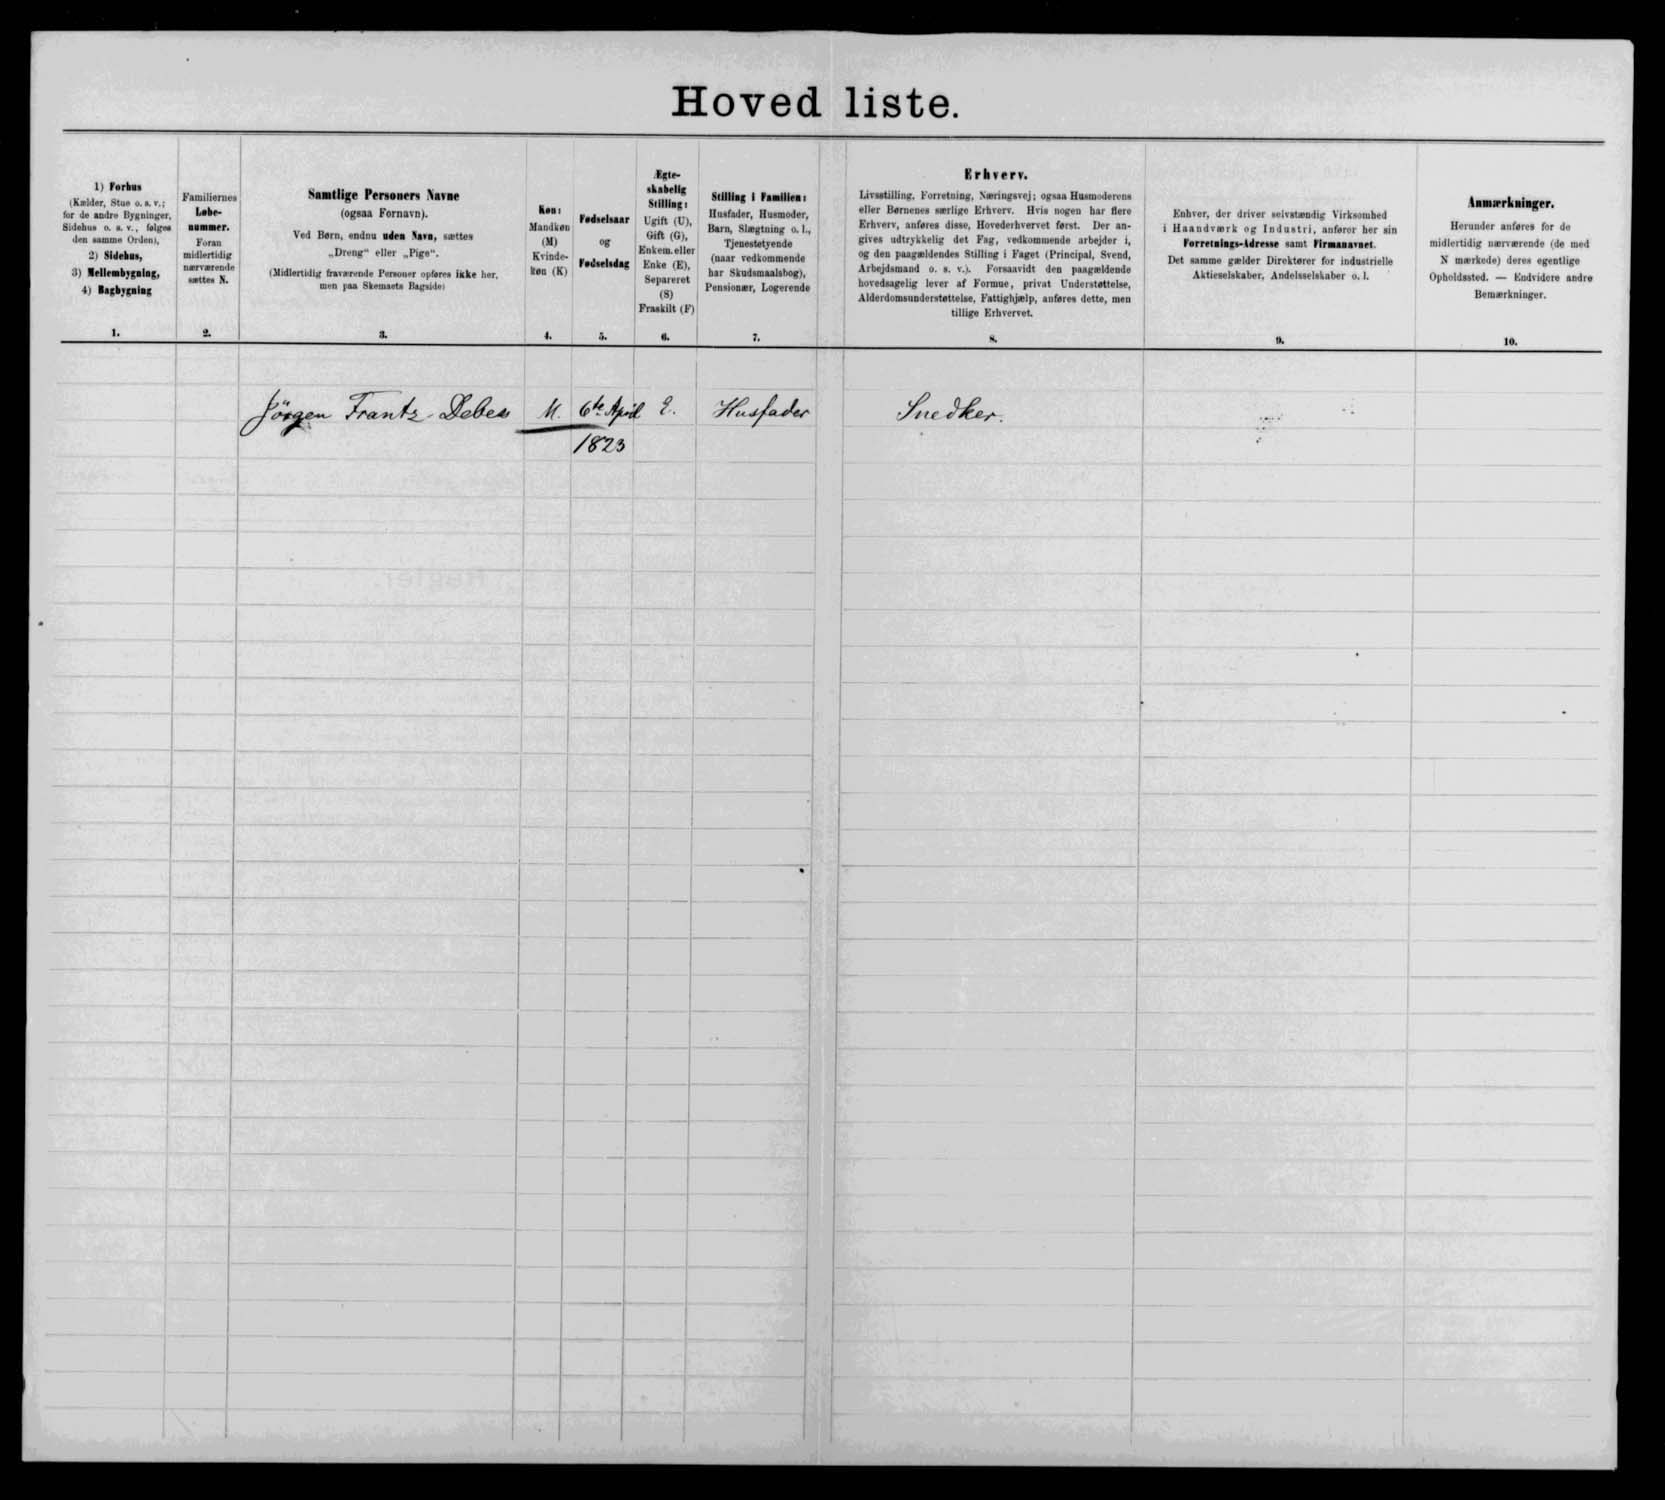 Hovedliste.
1) Forhus
(Kælder, Stue o. s. v.;
for de andre Bygninger,
Sidehus o. s. v., følges
den samme Orden),
2) Sidehus,
3) Mellembygning,
4) Bagbygning
1.
Familiernes
Løbe-
nummer.
Foran
midlertidig
nærværende
sættes N.
2.
Samtlige Personers Navne
(ogsaa Fornavn).
Ved Børn, endnu uden Navn, sættes
„Dreng“ eller „Pige“.
(Midlertidig fraværende Personer opføres ikke her,
men paa Skemaets Bagside)
3.
Køn:
Mandkøn
(M)
Kvinde-
køn (K)
4.
Fødselsaar
og
Fødselsdag
5.
Ægte-
skabelig
Stilling:
Ugift (U),
Gift (G),
Enkem. eller
Enke (E),
Separeret
(S)
Fraskilt (F)
6.
Stilling i Familien:
Husfader, Husmoder,
Barn, Slægtning o. l.,
Tjenestetyende
(naar vedkommende
har Skudsmaalsbog),
Pensionær, Logerende
7.
Erhverv.
Livsstilling, Forretning, Næringsvej; ogsaa Husmoderens
eller Børnenes særlige Erhverv. Hvis nogen har flere
Erhverv, anføres disse, Hovederhvervet først. Der an-
gives udtrykkelig det Fag, vedkommende arbejder i,
og den paagældendes Stilling i Faget (Principal, Svend,
Arbejdsmand o. s. v.). Forsaavidt den paagældende
hovedsagelig lever af Formue, privat Understøttelse,
Alderdomsunderstøttelse, Fattighjælp, anføres dette, men
tillige Erhvervet.
8.
Enhver, der driver selvstændig Virksomhed
i Haandværk og Industri, anfører her sin
Forretnings-Adresse samt Firmanavnet.
Det samme gælder Direktører for industrielle
Aktieselskaber, Andelsselskaber o. l.
9.
Anmærkninger.
Herunder anføres for de
midlertidig nærværende (de med
N mærkede) deres egentlige
Opholdssted. — Endvidere andre
Bemærkninger.
10.
Jörgen Frantz Debes M. 6te April E. Husfader Snedker.
1823